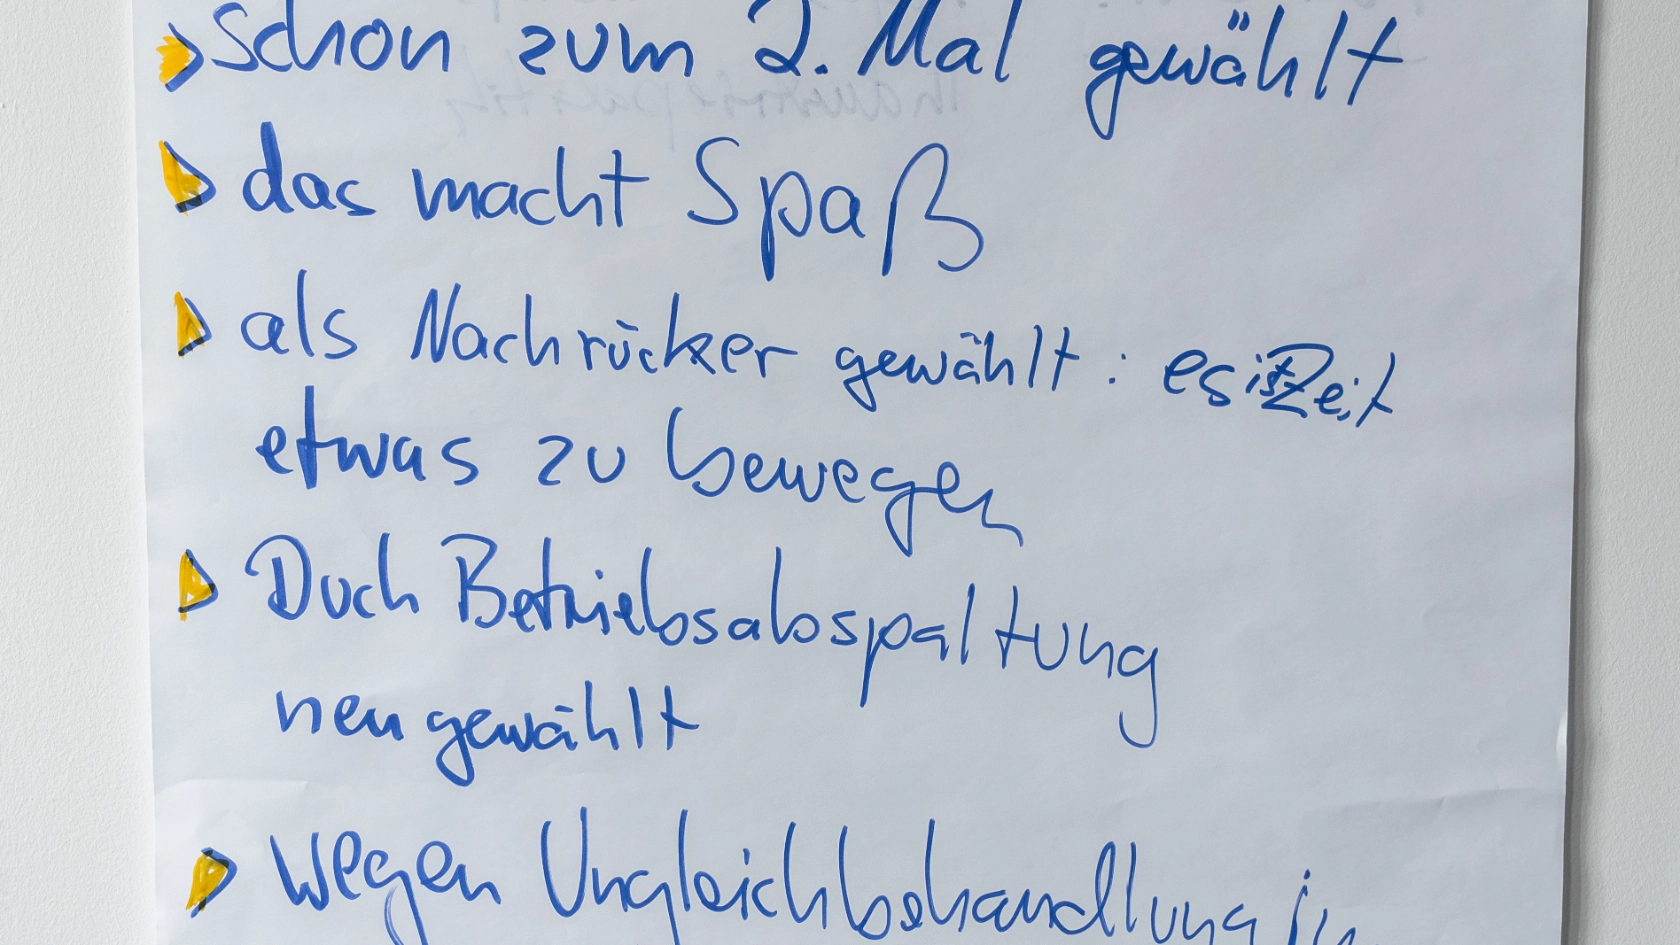 schon zum 2. Mal gewählt
das macht Spaß
als Nachrücker gewählt : es ist Zeit
etwas zu bewegen
Duch Betriebsabspaltung
neu gewählt
wegen Ungleichbehandlung in